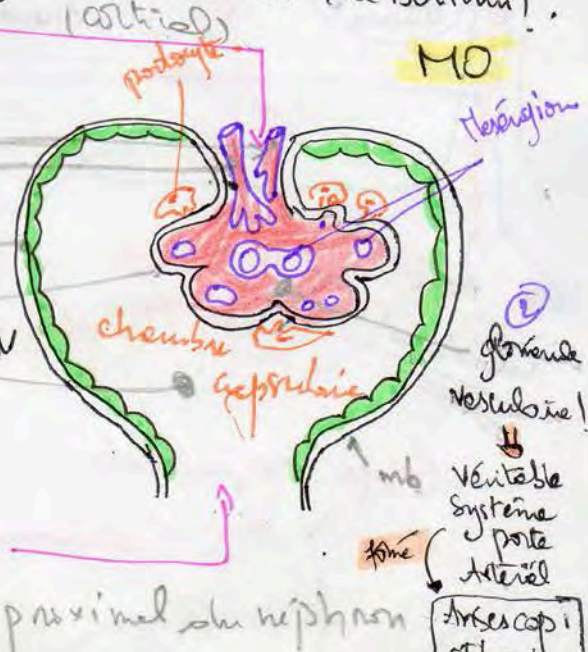 (cortical)
podocyte
MO
Mesángion
chambre
capsulaire
②
glomérule
vasculaire!
Véritable
système
porte
Artériel
mb
formé
proximal du néphron
Anses capi